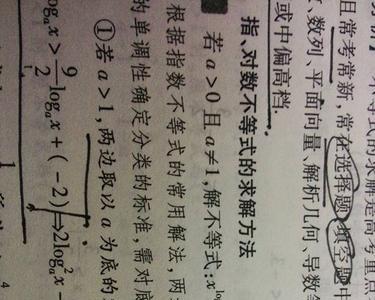 不等式的求解是高考重点
且常考常新,常在选择题、填空题中
、数列、平面向量、解析几何、导数
或中偏高档.
指、对数不等式的求解方法
若a>0且a≠1,解不等式:xˡᵒᵍ
根据指数不等式的常用解法,两
的单调性确定分类的标准,需对底
①若a>1,两边取以a为底的
logₐx>9/2logₐx+(-2)⇒2logₐ²x-